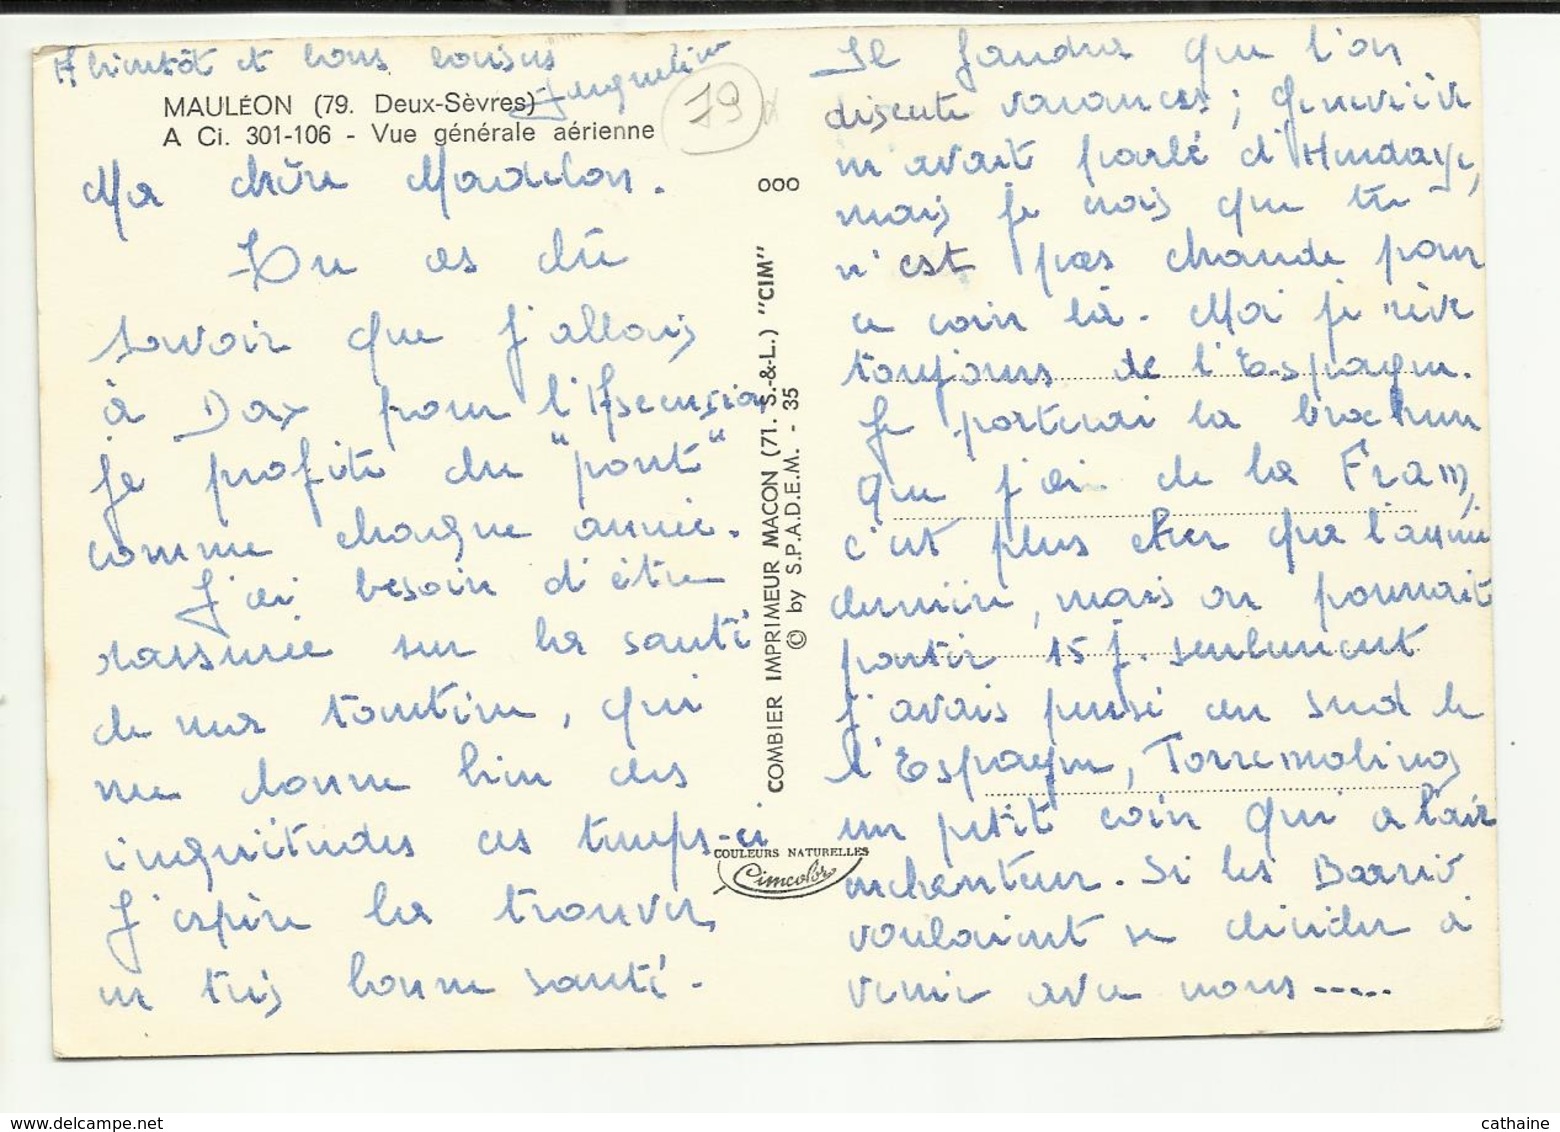 A bientôt et bons baisers
Jacqueline
MAULÉON (79. Deux-Sèvres)
A Ci. 301-106 - Vue générale aérienne
79
Ma chère Madelon.
Tu as dû
savoir que j'allais
à Dax pour l'Ascension
je profite du "pont"
comme chaque année.
J'ai besoin d'être
rassurée sur la santé
de ma tantine, qui
me donne bien des
inquiétudes ces temps-ci
J'espère la trouver
en très bonne santé.
ooo
COMBIER IMPRIMEUR MACON (71. S.-&-L.) "CIM"
© by S.P.A.D.E.M. - 35
COULEURS NATURELLES
Cimcolor
Il faudra que l'on
discute vacances; Geneviève
m'avait parlé d'Hendaye,
mais je crois que tu
n'est pas chaude pour
ce coin là. Moi je rêve
toujours de l'Espagne.
Je porterai la brochure
que j'ai de la Fram,
c'est plus cher que l'année
dernière, mais on pourrait
partir 15 j. seulement
J'avais pensé au sud de
l'Espagne, Torremolinos
un petit coin qui a l'air
enchanteur. Si les
voulaient se décider à
venir avec nous.....
cathaine